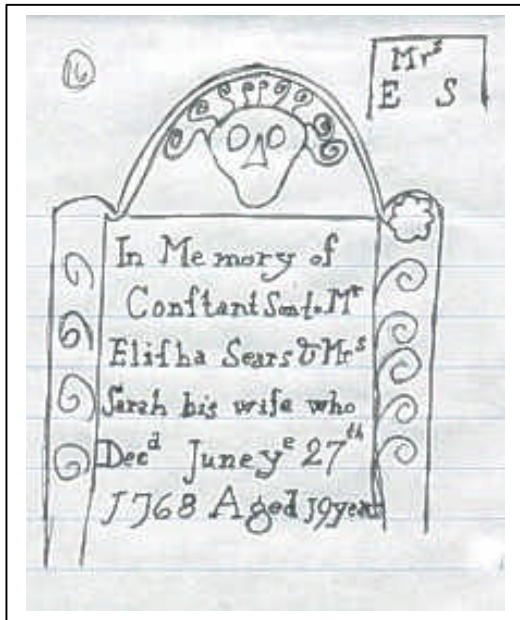 16
Mrs
E S
In Memory of
Conſtant Son to Mr
Eliſha Sears & Mrs
Sarah his wife who
Decd June ye 27th
1768 Aged 19 years